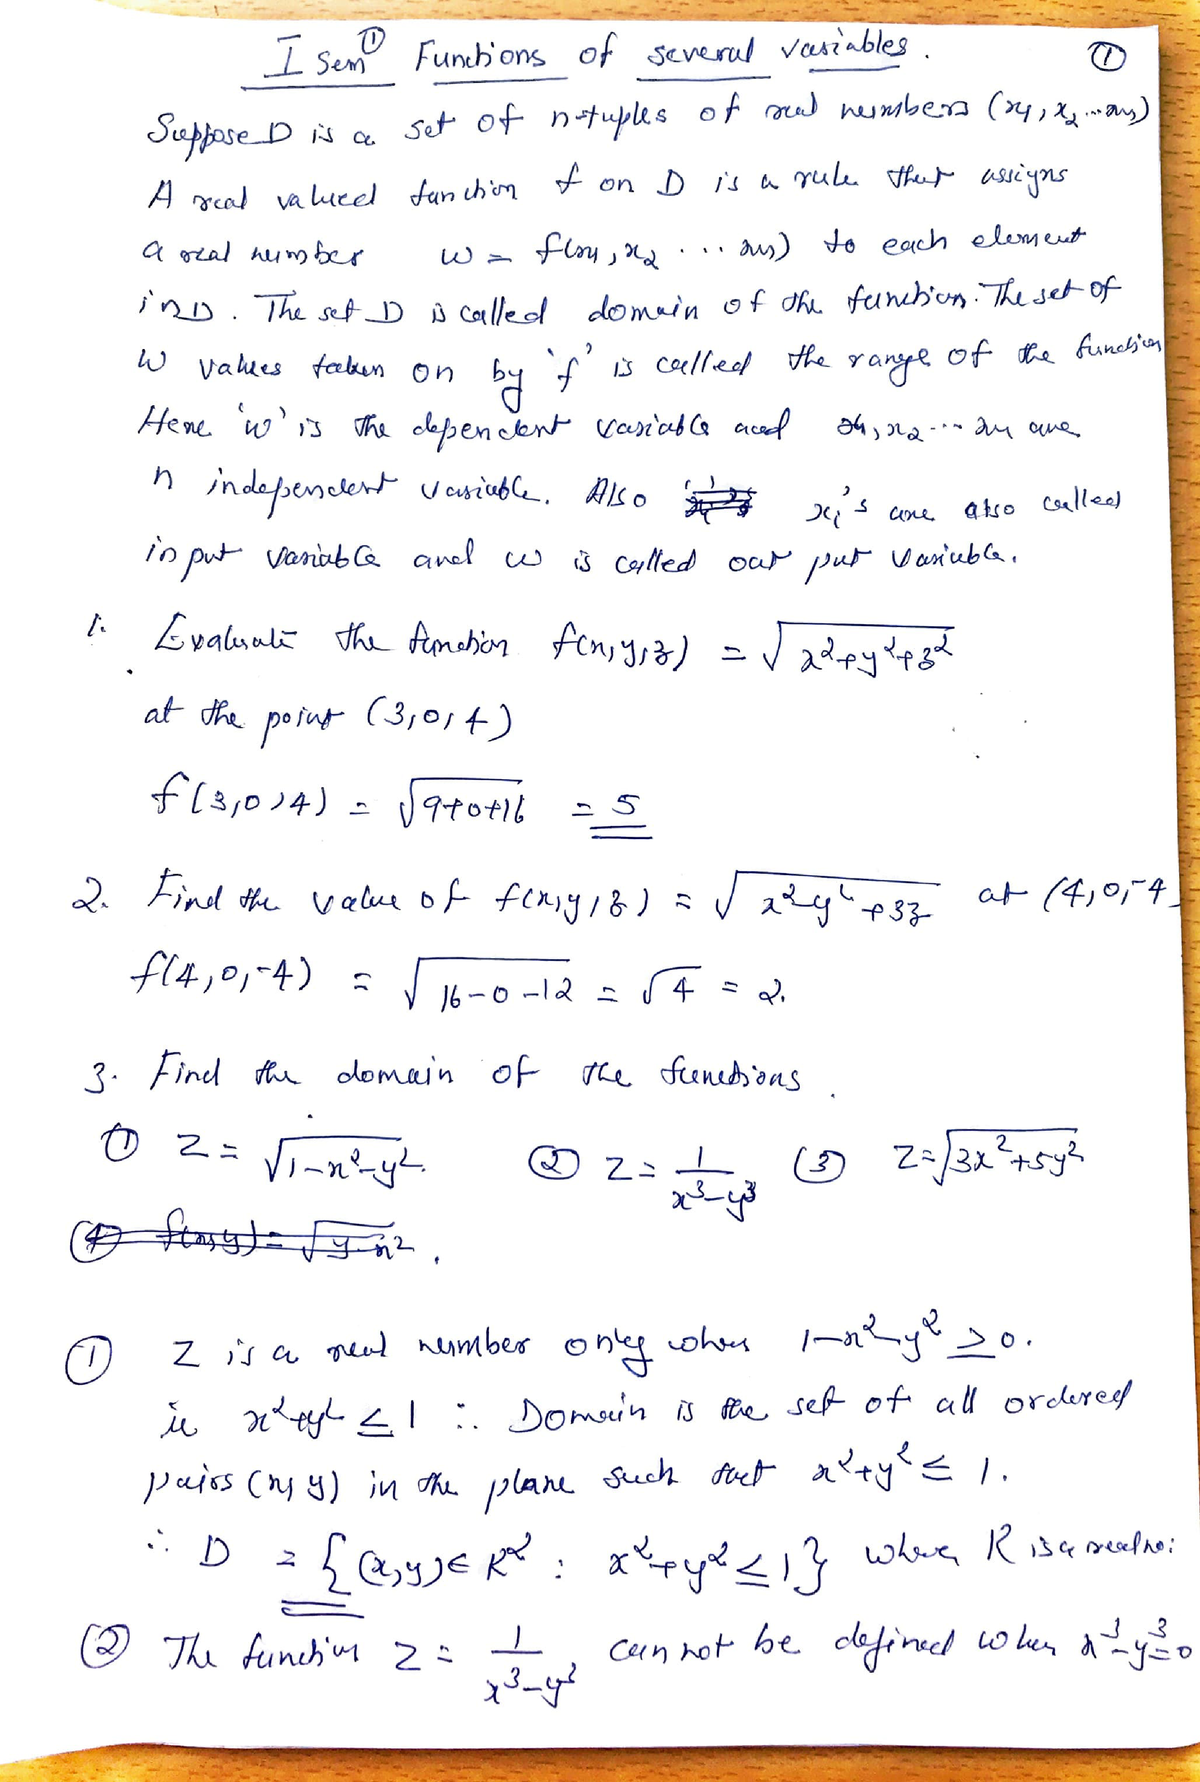 I Sem ① Functions of several variables. ①
Suppose D is a set of n-tuples of real numbers (x₁, x₂ ... xₙ)
A real valued function f on D is a rule that assigns
a real number w = f(x₁, x₂ ... xₙ) to each element
in D. The set D is called domain of the function. The set of
w values taken on by 'f' is called the range of the function
Here 'w' is the dependent variable and x₁, x₂ ... xₙ are
n independent variable. Also xᵢ's are also called
input variable and w is called out put variable.
1. Evaluate the function f(x,y,z) = √x²+y²+z²
at the point (3,0,4)
f(3,0,4) = √9+0+16 = 5
2. Find the value of f(x,y,z) = √x²y²+3z at (4,0,-4
f(4,0,-4) = √16-0-12 = √4 = 2.
3. Find the domain of the functions.
① Z = √1-x²-y². ② Z = 1/x³-y³ ③ Z = √3x²+5y²
④ f(x,y) = √y-x².
① Z is a real number only when 1-x²-y² ≥ 0.
ie x²+y² ≤ 1 ∴ Domain is the set of all ordered
pairs (x, y) in the plane such that x²+y² ≤ 1.
∴ D = {(x,y) ∈ R² : x²+y² ≤ 1} where R is a real no:
② The function Z = 1/x³-y³ can not be defined when x³-y³=0